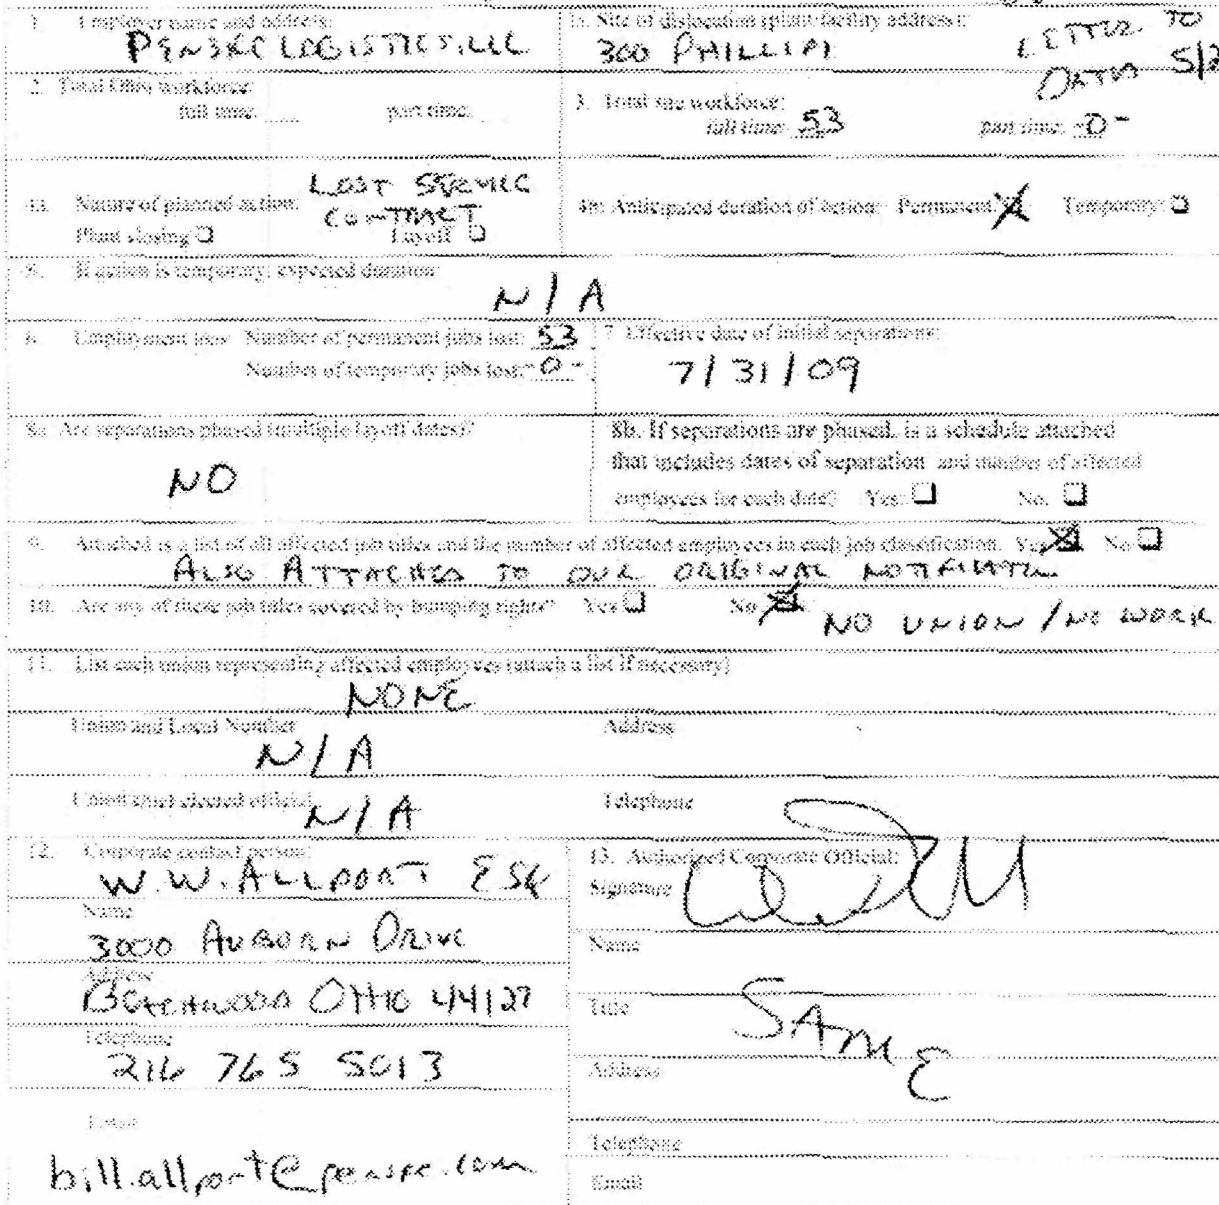 1. Employer name and address:
PENSKE LOGISTICS, LLC
Site of dislocation (plant facility address):
300 PHILLIPI
LETTER TO
5/2
2. Total Ohio workforce:
full time: part time:
3. Total site workforce:
full time: 53 part time: -0-
4a. Nature of planned action: LOST SERVICE
CONTRACT
Plant closing ☐ Layoff ☐
4b. Anticipated duration of action: Permanent: ☒ Temporary: ☐
5. If action is temporary, expected duration
N/A
6. Employment loss: Number of permanent jobs lost: 53
Number of temporary jobs lost: -0-
7. Effective date of initial separations:
7/31/09
8a. Are separations phased (multiple layoff dates)?
NO
8b. If separations are phased, is a schedule attached
that includes dates of separation and number of affected
employees for each date? Yes: ☐ No: ☐
9. Attached is a list of all affected job titles and the number of affected employees in each job classification. Yes ☒ No ☐
ALSO ATTACHED TO OUR ORIGINAL
10. Are any of these job titles covered by bumping rights? Yes ☐ No ☒ NO UNION / NO WORK
11. List each union representing affected employees (attach a list if necessary)
NONE
Union and Local Number Address
N/A
Union chief elected official Telephone
N/A
12. Corporate contact person:
W.W. ALLPORT ESQ
Name
3000 AUBURN DRIVE
Address
BEACHWOOD OHIO 44127
Telephone
216 765 5013
Email
bill.allport@penske.com
13. Authorized Corporate Official:
Signature
Name
Title
SAME
Address
Telephone
Email